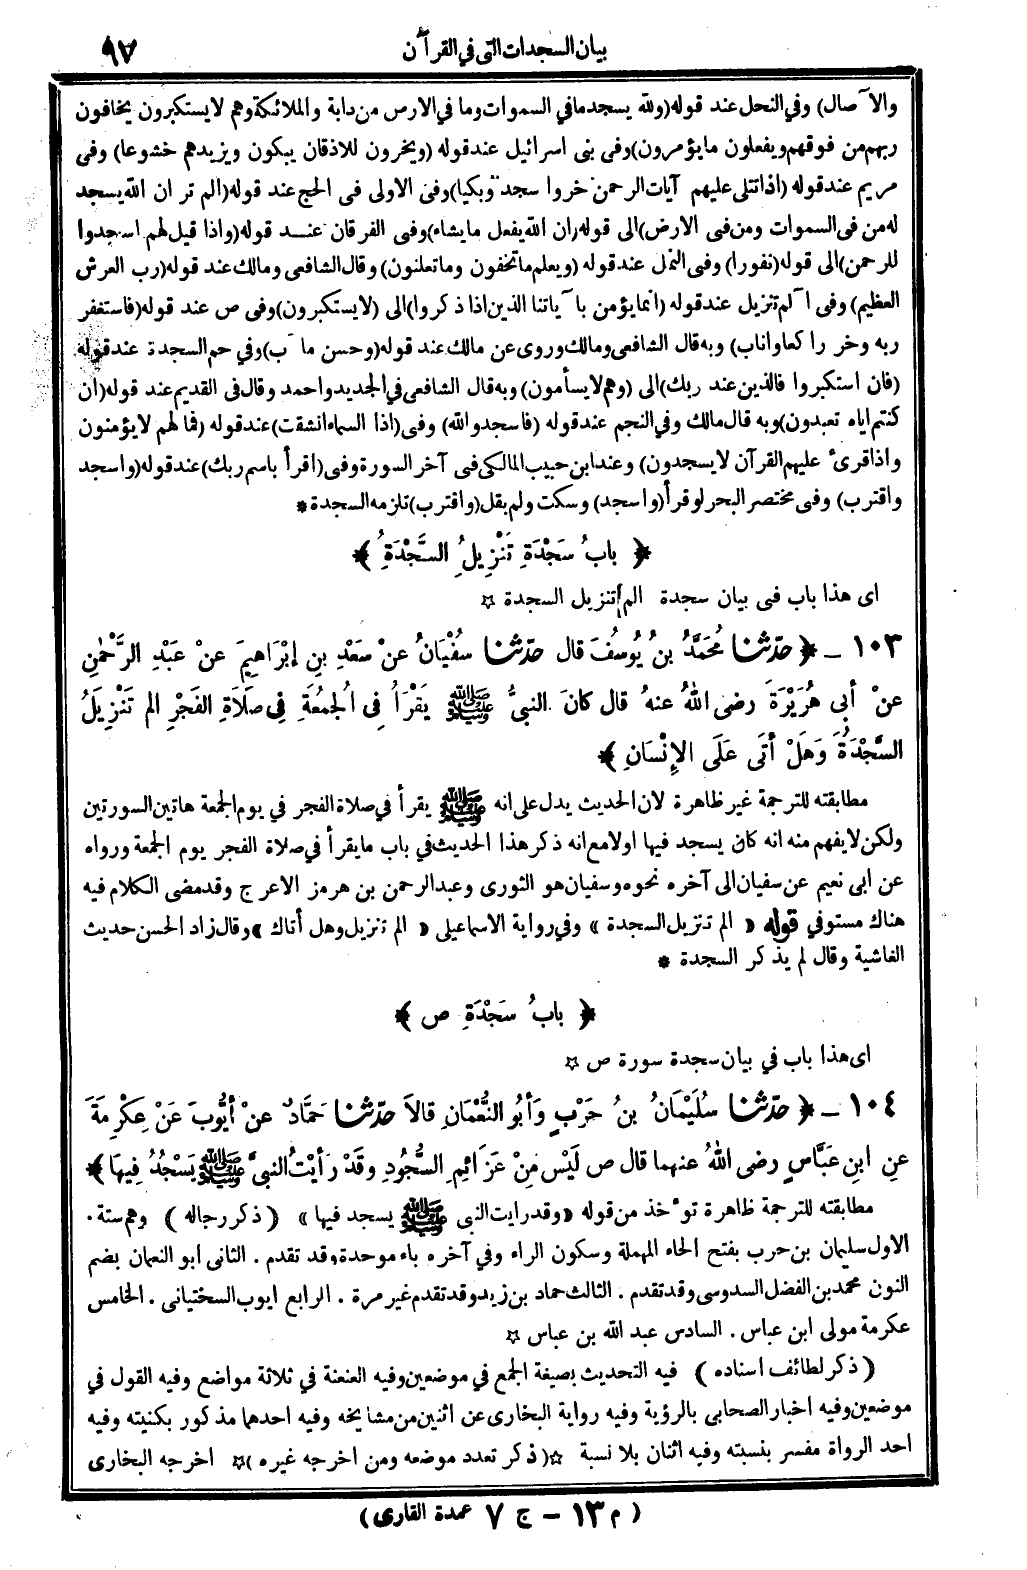 بيان السجدات التى في القرآن
٩٧
والآصال) وفي النحل عند قوله (ولله يسجد مافي السموات وما في الارض من دابة والملائكة وهم لايستكبرون يخافون
ربهم من فوقهم ويفعلون مايؤمرون) وفى بنى اسرائيل عند قوله (ويخرون للاذقان يبكون ويزيدهم خشوعا) وفى
مريم عند قوله (اذا تتلى عليهم آيات الرحمن خروا سجدا وبكيا) وفى الاولى فى الحج عند قوله (الم تر ان الله يسجد
له من فى السموات ومن فى الارض) الى قوله (ان الله يفعل مايشاء) وفى الفرقان عند قوله (واذا قيل لهم اسجدوا
للرحمن) الى قوله (نفورا) وفى النمل عند قوله (ويعلم ماتخفون وماتعلنون) وقال الشافعى ومالك عند قوله (رب العرش
العظيم) وفى الم تنزيل عند قوله (انما يؤمن بآياتنا الذين اذا ذكروا) الى (لايستكبرون) وفى ص عند قوله (فاستغفر
ربه وخر راكعا واناب) وبه قال الشافعى ومالك وروى عن مالك عند قوله (وحسن مآب) وفي حم السجدة عند قوله
(فان استكبروا فالذين عند ربك) الى (وهم لايسأمون) وبه قال الشافعى في الجديد واحمد وقال فى القديم عند قوله (ان
كنتم اياه تعبدون) وبه قال مالك وفي النجم عند قوله (فاسجدوا لله) وفى (اذا السماء انشقت) عند قوله (فما لهم لايؤمنون
واذا قرىء عليهم القرآن لايسجدون) وعند ابن حبيب المالكى فى آخر السورة وفى (اقرأ باسم ربك) عند قوله (واسجد
واقترب) وفى مختصر البحر لو قرأ (واسجد) وسكت ولم يقل (واقترب) تلزمه السجدة *
﴿ بابُ سَجْدَةِ تَنْزِيلُ السَّجْدَةُ ﴾
اى هذا باب فى بيان سجدة الم تنزيل السجدة ☆
١٠٣ - ﴿ حدّثنا مُحَمَّدُ بنُ يُوسُفَ قال حدّثنا سُفْيَانُ عنْ سَعْدِ بنِ إبْرَاهِيمَ عنْ عَبْدِ الرَّحْمٰنِ
عنْ أبى هُرَيْرَةَ رضى اللهُ عنهُ قال كانَ النبىُّ ﷺ يَقْرَأُ فِى الجُمعَةِ فِى صَلاَةِ الفَجْرِ الم تَنْزِيلُ
السَّجْدَةُ وَهَلْ أتَى عَلَى الإِنْسَانِ ﴾
مطابقته للترجمة غير ظاهرة لان الحديث يدل على انه ﷺ يقرأ في صلاة الفجر في يوم الجمعة هاتين السورتين
ولكن لايفهم منه انه كان يسجد فيها اولا مع انه ذكر هذا الحديث في باب ما يقرأ في صلاة الفجر يوم الجمعة ورواه
عن ابى نعيم عن سفيان الى آخره نحوه وسفيان هو الثورى وعبد الرحمن بن هرمز الاعرج وقد مضى الكلام فيه
هناك مستوفي قوله « الم تنزيل السجدة » وفي رواية الاسماعيلى « الم تنزيل وهل أتاك » وقال زاد الحسن حديث
الغاشية وقال لم يذكر السجدة *
﴿ بابُ سَجْدَةِ ص ﴾
اى هذا باب في بيان سجدة سورة ص ☆
١٠٤ - ﴿ حدّثنا سُلَيْمَانُ بنُ حَرْبٍ وَأبُو النُّعْمَانِ قالاَ حدّثنا حَمَّادٌ عنْ أيُّوبَ عَنْ عِكْرِمَةَ
عنِ ابنِ عَبَّاسٍ رضى اللهُ عنهما قال ص لَيْسَ مِنْ عَزَائِمِ السُّجُودِ وقَدْ رَأيْتُ النبىَّ ﷺ يَسْجُدُ فِيهَا ﴾
مطابقته للترجمة ظاهرة تؤخذ من قوله «وقد رايت النبى ﷺ يسجد فيها» ( ذكر رجاله ) وهم ستة .
الاول سليمان بن حرب بفتح الحاء المهملة وسكون الراء وفي آخره باء موحدة وقد تقدم . الثانى ابو النعمان بضم
النون محمد بن الفضل السدوسى وقد تقدم . الثالث حماد بن زيد وقد تقدم غير مرة . الرابع ايوب السختيانى . الخامس
عكرمة مولى ابن عباس . السادس عبد الله بن عباس ☆
( ذكر لطائف اسناده ) فيه التحديث بصيغة الجمع في موضعين وفيه العنعنة في ثلاثة مواضع وفيه القول في
موضعين وفيه اخبار الصحابى بالرؤية وفيه رواية البخارى عن اثنين من مشايخه وفيه احدهما مذكور بكنيته وفيه
احد الرواة مفسر بنسبته وفيه اثنان بلا نسبة ☆ ( ذكر تعدد موضعه ومن اخرجه غيره ) ☆ اخرجه البخارى
( م ١٣ - ج ٧ عمدة القارى )